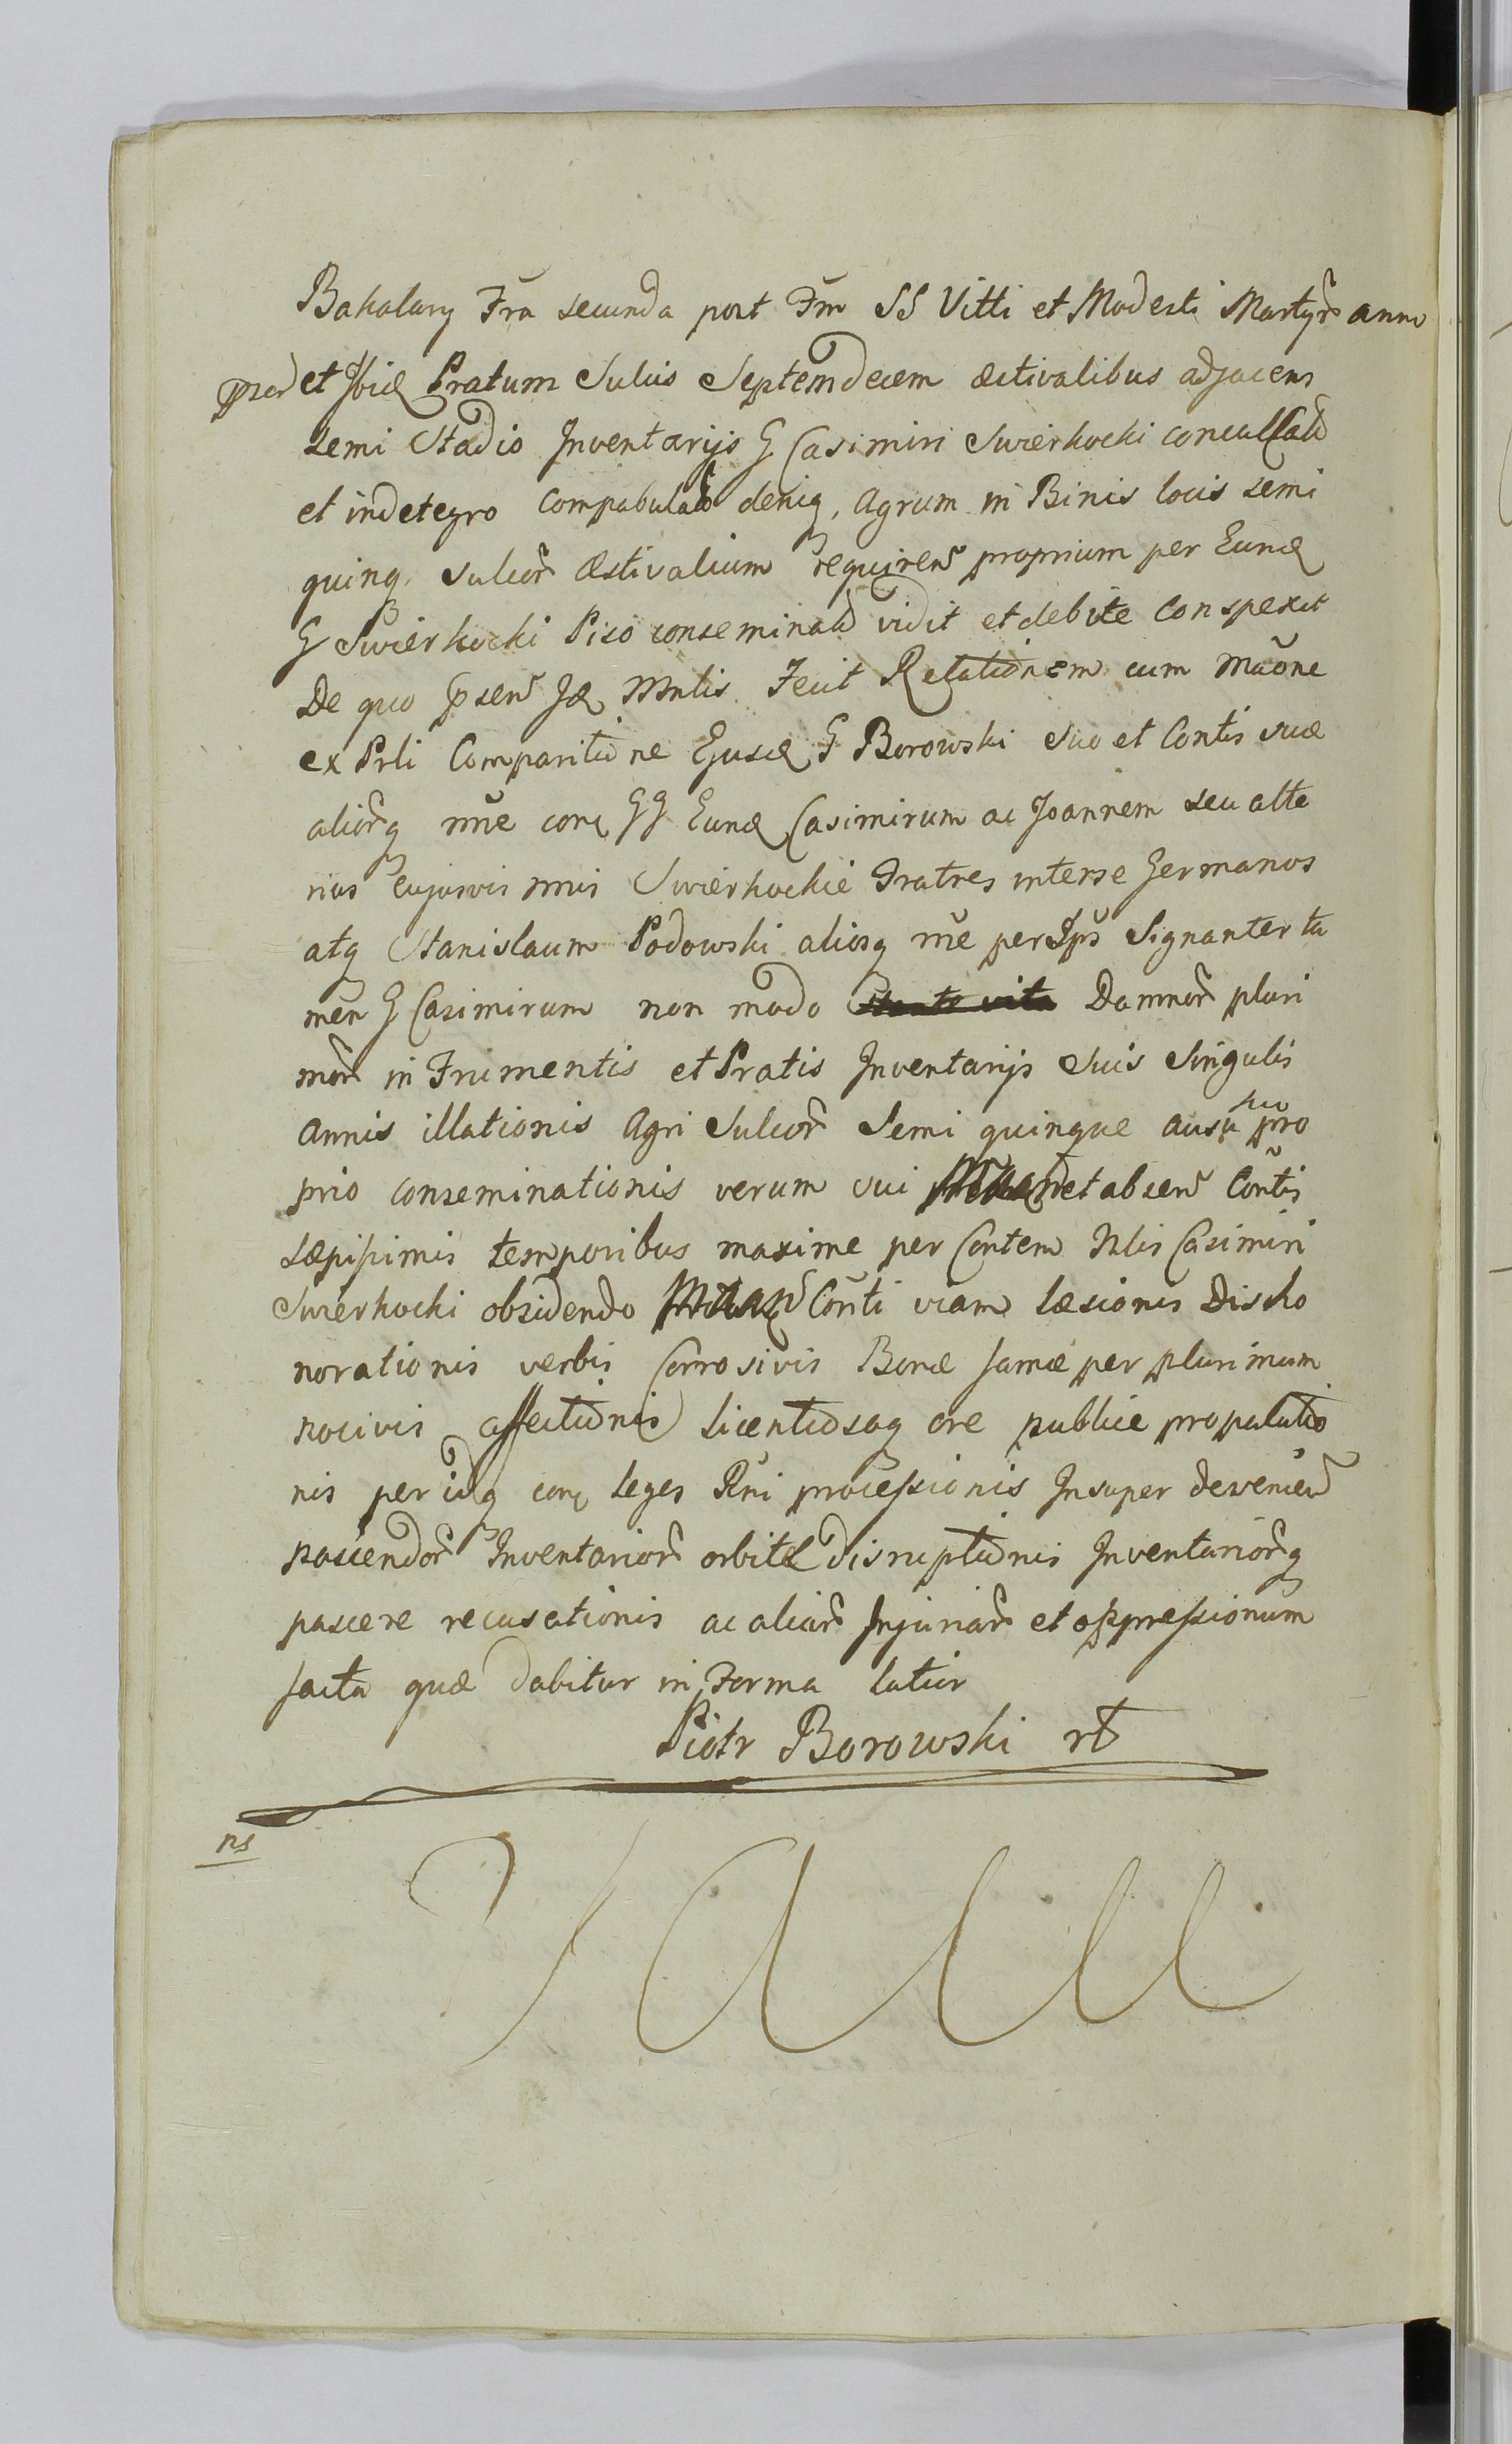 Bakalary Fra secunda post Fm SS Vitti et Modesti Martyr̃ anno
præd et Ibid Pratum Sulcis Septemdecem æstivalibus adjacens
semi Stadio Inventarijs G Casimiri Swierkocki conculcatũ
et indetegro compabulatũ deniq, Agrum in Binis locis semi
quinq, Sulcor̃ Æstivalium requirens̃ proprium per Eund
G Swierkocki Piso conseminatũ vidit et debite conspexit
De quo p̃sens̃ Jd Mnlis Fecit Relationem cum Mãõne
ex Prli Comparitione Ejusd G Borowski suo et Contis suæ
alior̃q nñe con GG Eund Casimirum ac Joannem seu alte
rius cujusvis nnis Swierkockie Fratres interse Germanos
atq Stanislaum Podowski aliosq nñe per Ips̃ Signanter ta
men G Casimirum non modo Damnor̃ pluri
mor̃ in Frumentis et Pratis Inventarijs Suis Singulis
Annis illationis Agri Sulcor̃ Semi quinque ausu suo pro
prio conseminationis verum sui et absens̃ Coñtis
sæpissimis temporibus maxime per Contem Nlis Casimiri
Swierkocki obsidendo Coñti viam læsionis Disho
norationis verbis Corrosivis Bonæ famæ per plurimum
nocivis affectionis licentiosaq ore publice propalatio
nis per idq con Leges Rñi processionis Insuper deveniend̃
pascendor̃ Inventarior̃ orbitæ disruptionis Inventarior̃q
pascere recusationis ac aliar̃ Injuriar̃ et oppressionum
facta quæ dabitur in Forma latior
Piotr Borowski rt
ns